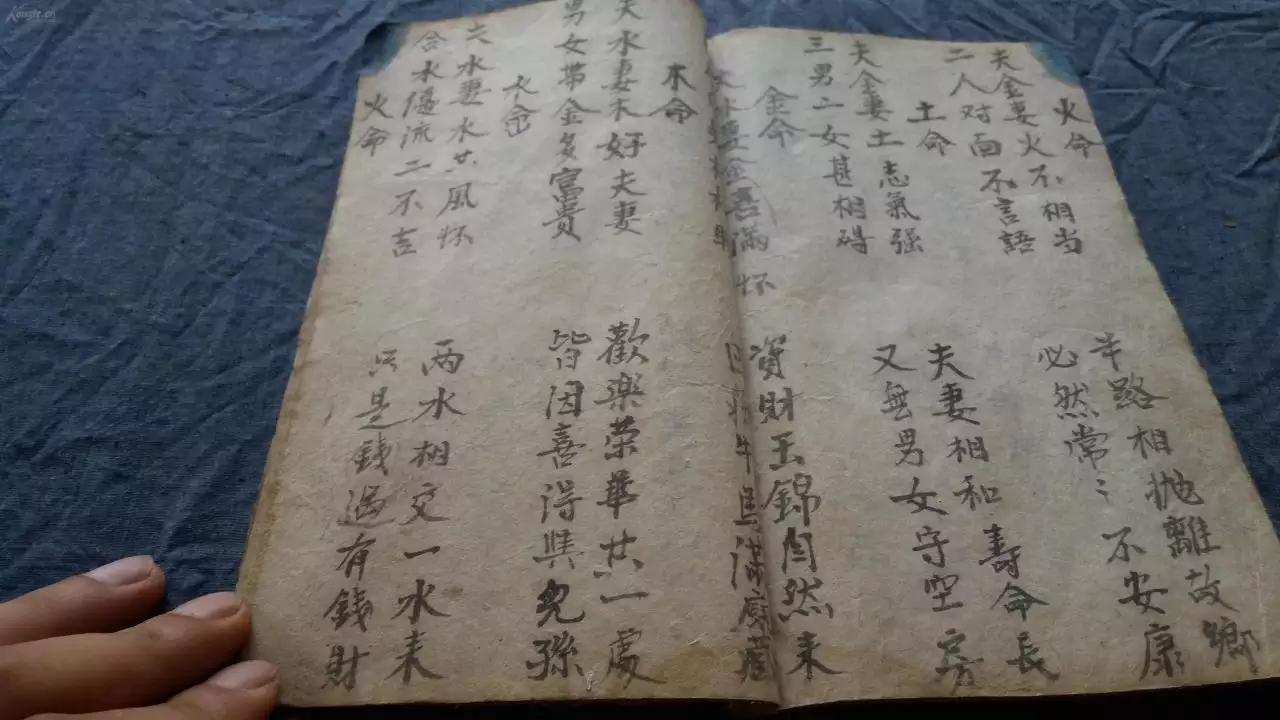 火命
夫金妻火不相当
半路相抛離故鄉
二人对面不言語
必然常〻不安康
土命
夫金妻土志氣强
夫妻相和寿命長
三男二女甚相碍
又無男女守空房
金命
夫水妻金喜滿怀
資財玉錦自然来
牛馬滿
木命
夫水妻木好夫妻
歡樂荣華共一處
男女帶金多富貴
皆因喜得與兒孫
水命
夫水妻水共風怀
两水相交一水来
合水隄流二不吉
只是錢過有錢財
火命